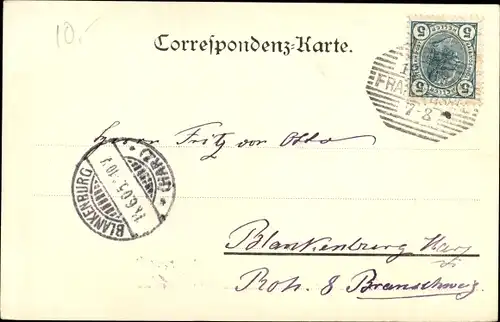 10.-
Correspondenz-Karte.
5 5
5 5
FRA
7-8
Herrn Fritz von Otto
BLANKENBURG (HARZ)
14.6.05.
Blankenburg Harz
8 Braunschweig.